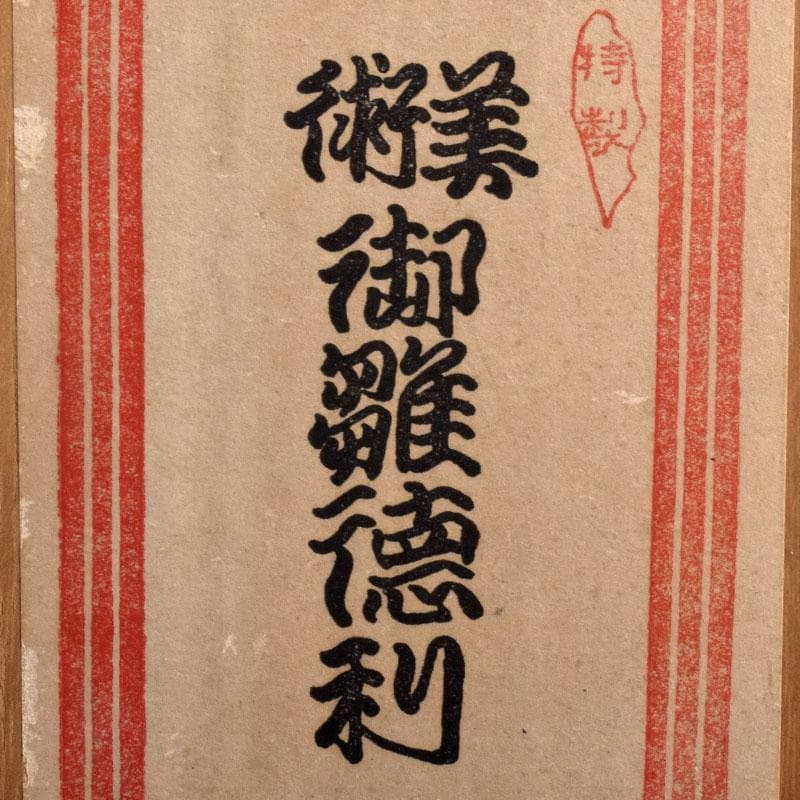 特製
美術
御雛徳利